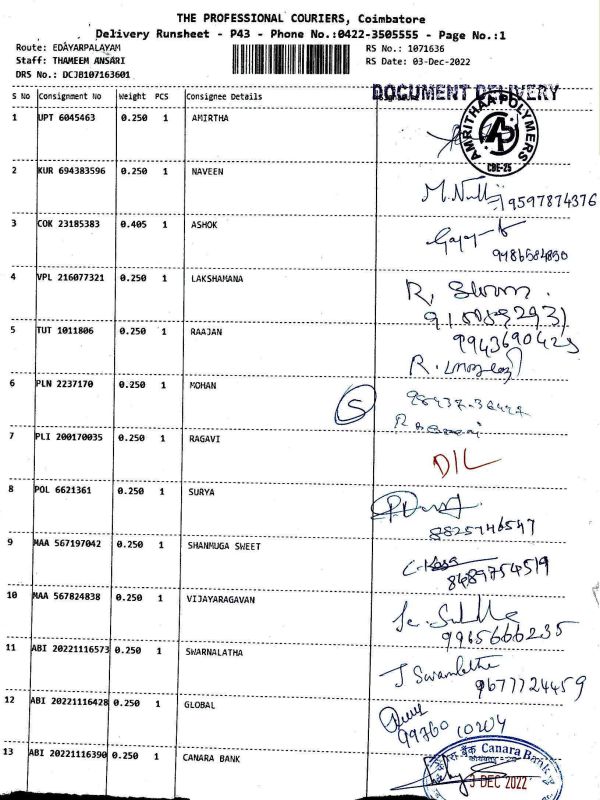 THE PROFESSIONAL COURIERS, Coimbatore
Delivery Runsheet - P43 - Phone No.:0422-3505555 - Page No.:1
Route: EDAYARPALAYAM RS No.: 1071636
Staff: THAMEEM ANSARI RS Date: 03-Dec-2022
DRS No.: DCJB107163601
DOCUMENT DELIVERY
S No Consignment No Weight PCS Consignee Details
1 UPT 6045463 0.250 1 AMIRTHA
AMRITHAA POLYMERS
AP
CBE-25
2 KUR 694383596 0.250 1 NAVEEN
9597874376
3 COK 23185383 0.405 1 ASHOK
4 VPL 216077321 0.250 1 LAKSHAMANA
R.
5 TUT 1011806 0.250 1 RAAJAN
R.
6 PLN 2237170 0.250 1 MOHAN
S
7 PLI 200170035 0.250 1 RAGAVI
D/L
8 POL 6621361 0.250 1 SURYA
8825746547
9 MAA 567197042 0.250 1 SHANMUGA SWEET
8489754519
10 MAA 567824838 0.250 1 VIJAYARAGAVAN
9965666235
11 ABI 20221116573 0.250 1 SWARNALATHA
J Swarnlatha
9677724459
12 ABI 20221116428 0.250 1 GLOBAL
99760 10204
13 ABI 20221116390 0.250 1 CANARA BANK
Canara Bank
3 DEC 2022